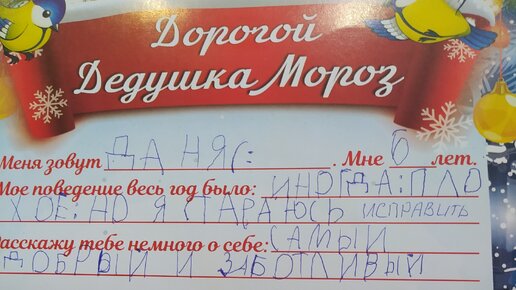 Дорогой
Дедушка Мороз
Меня зовут ДАНЯ(: . Мне 6 лет.
Мое поведение весь год было: ИНОГДА: ПЛО
ХОЕ; НО Я СТАРАЮСЬ ИСПРАВИТЬ
Расскажу тебе немного о себе: САМЫЙ
ДОБРЫЙ И ЗАБОТЛИВЫЙ